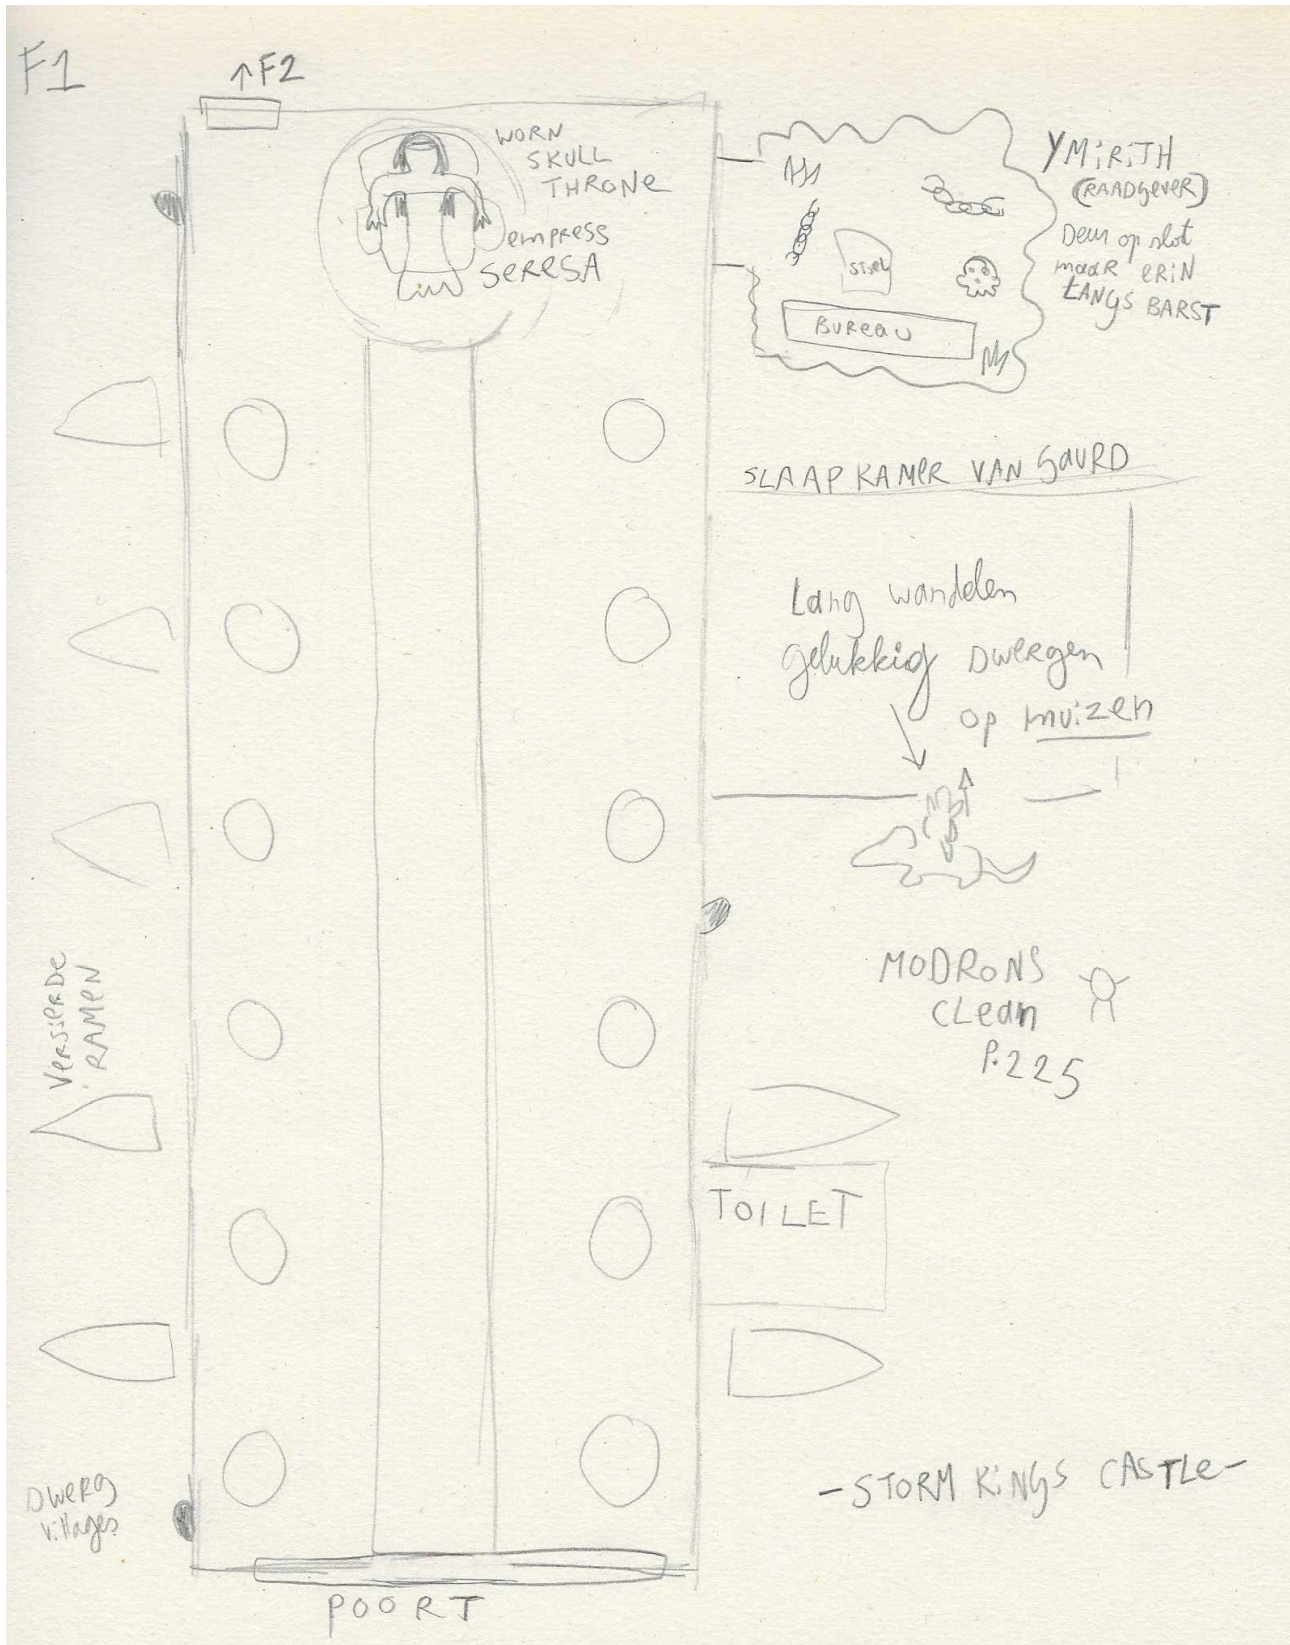 F1
↑F2
WORN
SKULL
THRONE
EMPRESS
SERESA
YMIRITH
(RAADgever)
Deur op slot
maar ERIN
LANgS BARST
STOEL
Bureau
SLAAPKAMER VAN GAURD
Lang wandelen
gelukkig Dwergen
op muizen
MODRONS
CLean
P.225
VERSIERDE
RAMEN
TOILET
Dwerg
Villages
-STORM KiNgS CASTLe-
POORT